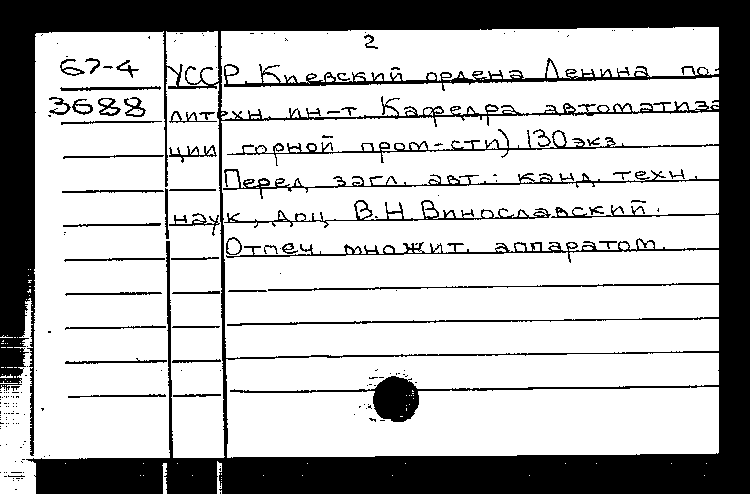 2
67-4 УССР. Киевский ордена Ленина по-
3688 литехн. ин-т. Кафедра автоматиза
ции горной пром-сти). 130 экз.
Перед загл. авт.: канд. техн.
наук, доц. В.Н. Винославский.
Отпеч. множит. аппаратом.